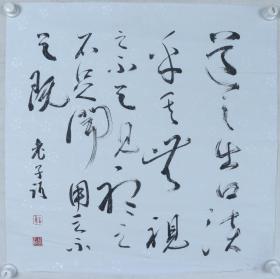 道之出口淡
乎其無視
之不足見聽之
不足聞用之不
足既
老子語